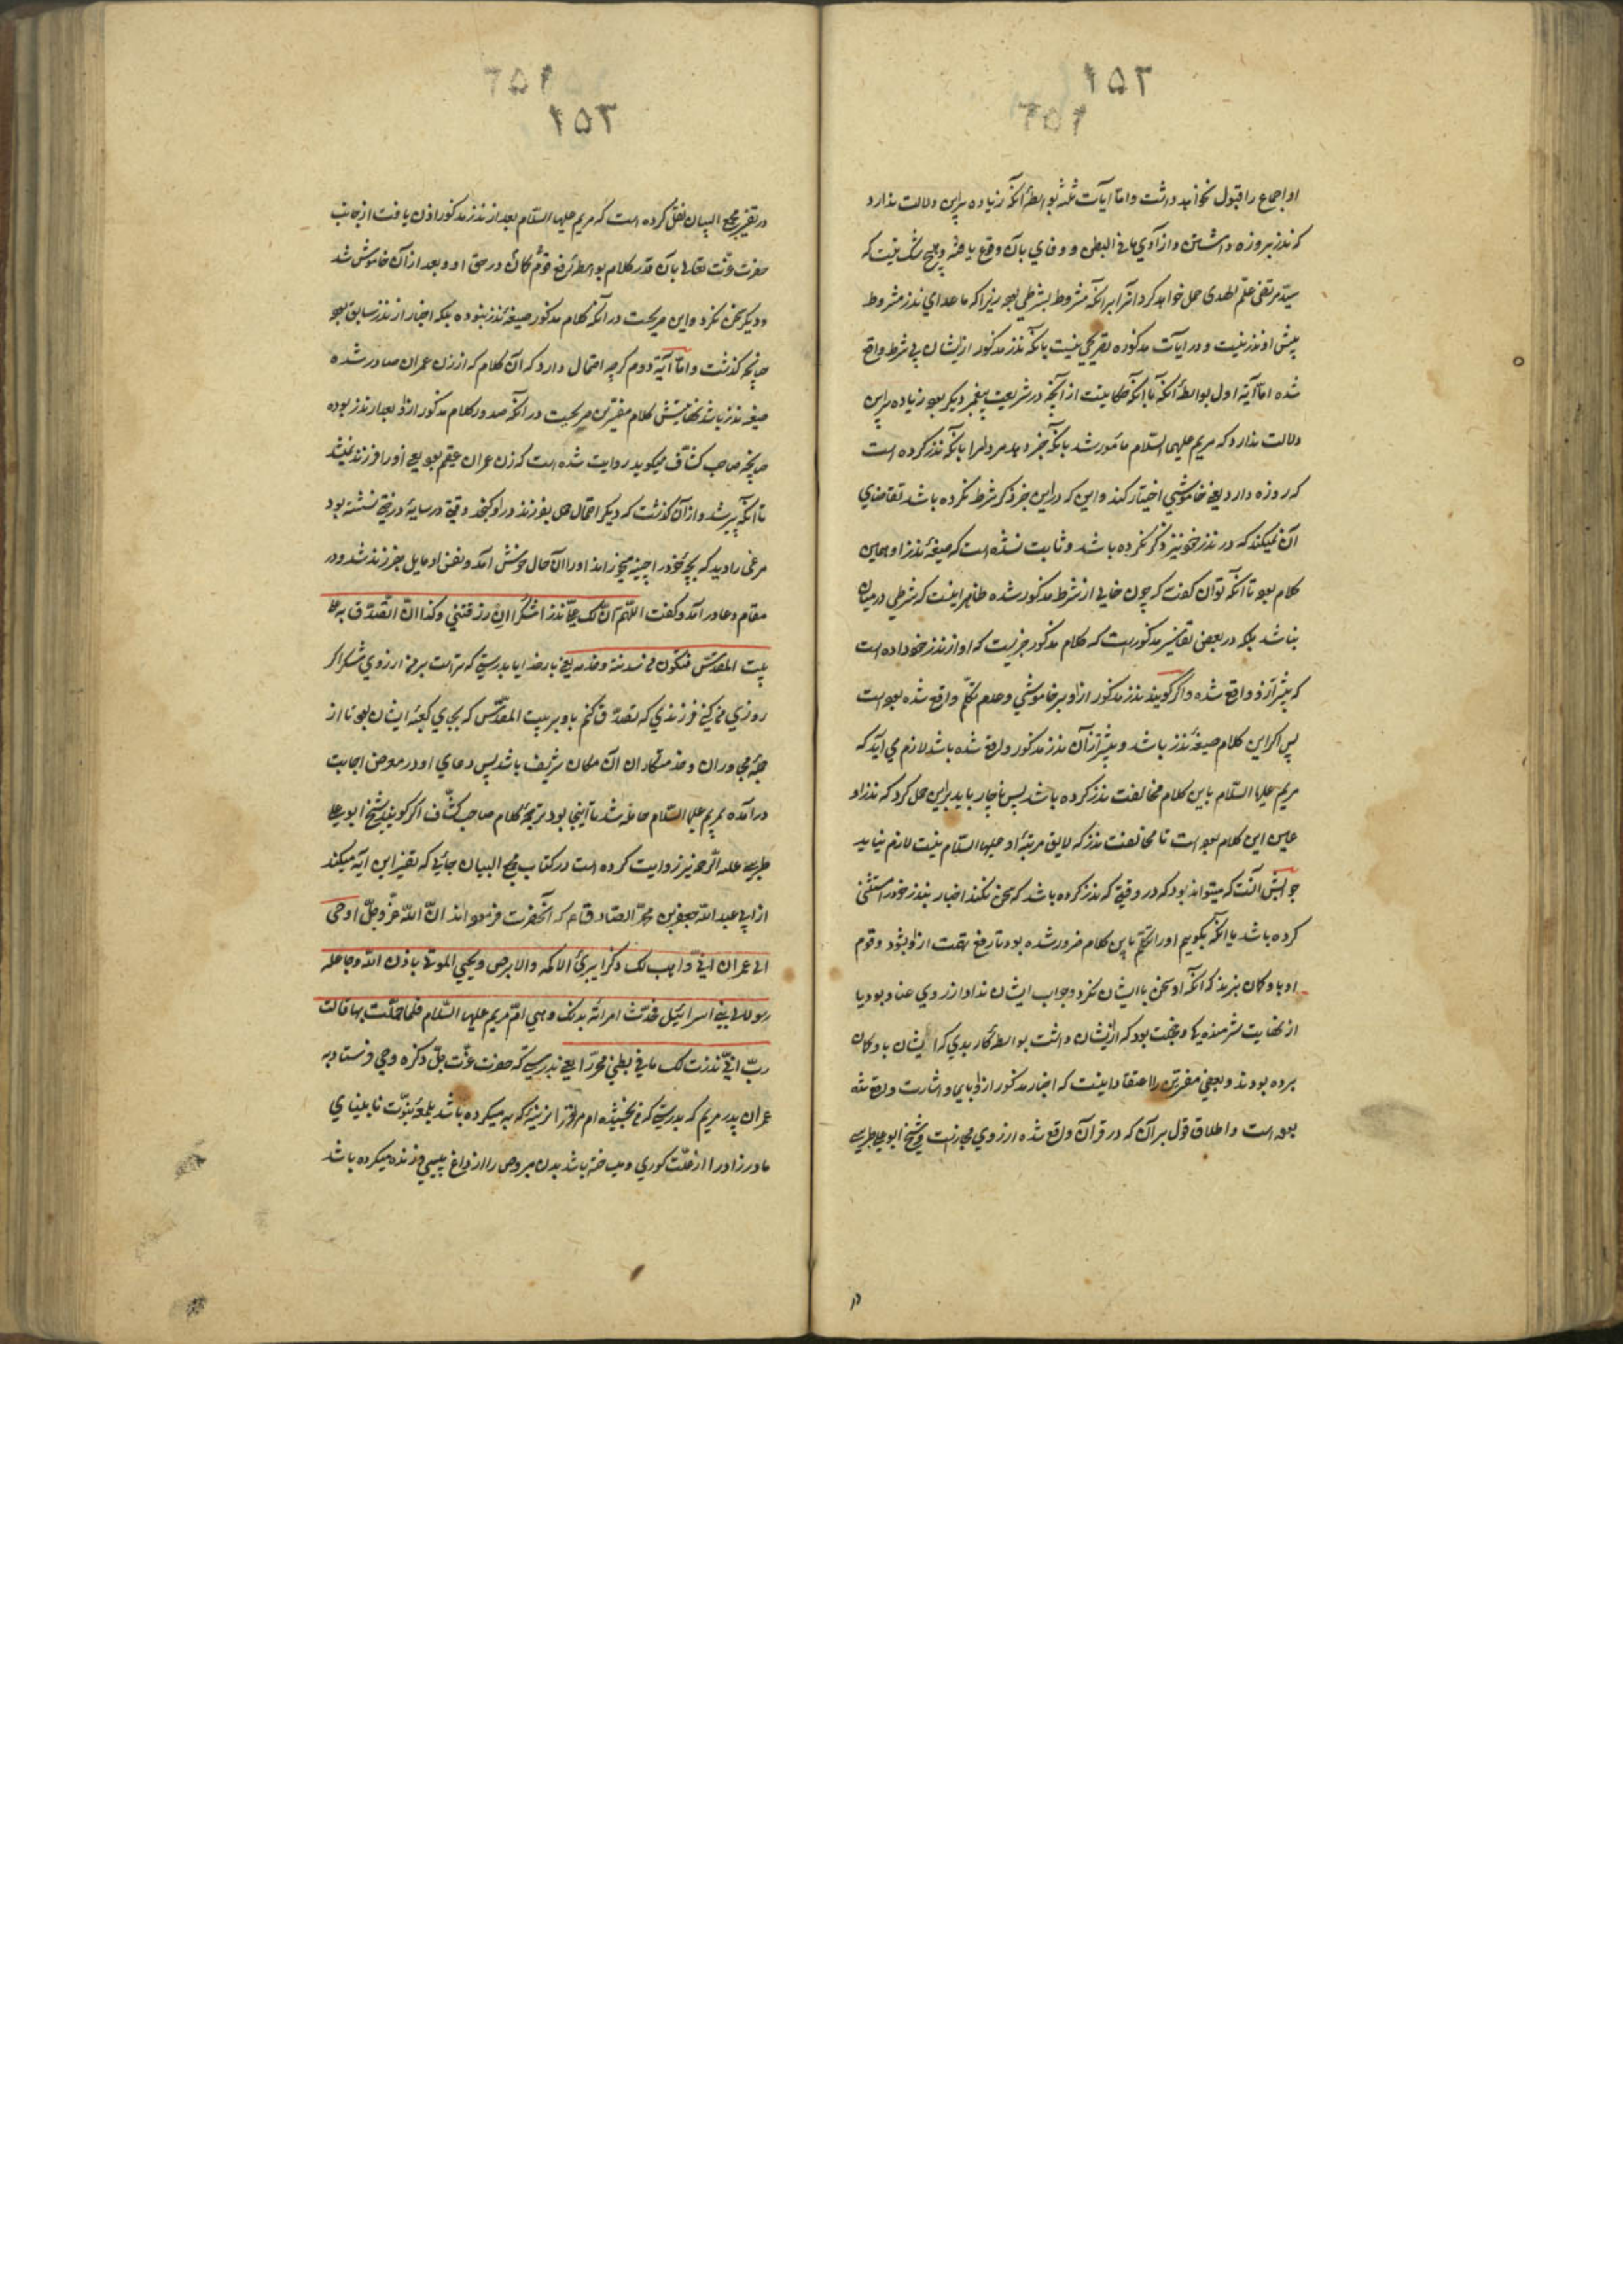 ۱۵۲
او اجماع را قبول نخواهد داشت و اما آیات ثلثه بواسطهٔ آنکه زیاده براین دلالت ندارد
که نذر بروزه داشتن و از آدی ما فی البطن و وفای بآن وقوع یافته و هیچ شک نیست که
سید مرتضی علم الهدی حمل خواهد کرد آنرا برانکه مشروط بشرطی بوده زیرا که ماعدای نذر مشروط
پیش او نذر نیست و در آیات مذکوره تصریحی نیست بآنکه نذر مذکور ازیشان بی شرط واقع
شده اما آیه اول بواسطهٔ آنکه با آنکه حکایتست از آنچه در شریعت پیغمبر دیگر بوده زیاده براین
دلالت ندارد که مریم علیها السلام مأمور شد بآنکه خبر دهد مردمرا بآنکه نذر کرده است
که روزه دارد یعنی خاموشی اختیار کند و این که دراین خبر ذکر شرط نکرده باشد تقاضای
آن نمیکند که در نذر خود نیز ذکر نکرده باشد و ثابت نشده است که صیغهٔ نذر او همین
کلام بوده تا آنکه توان گفت که چون خالی از شرط مذکور شده ظاهر اینست که شرطی درمیان
نباشد بلکه در بعضی تفاسیر مذکور است که کلام مذکور خبریست که او از نذر خود داده است
که پیشتر ازو واقع شده و اگر گویند نذر مذکور ازو بر خاموشی و عدم تکلم واقع شده بوده است
پس اگر این کلام صیغهٔ نذر باشد و پیشتر از آن نذر مذکور واقع شده باشد لازم می آید که
مریم علیها السلام باین کلام مخالفت نذر کرده باشد پس ناچار باید براین حمل کرد که نذر او
عین این کلام بوده است تا مخالفت نذر که لایق مرتبهٔ او علیها السلام نیست لازم نیاید
جوابش آنست که میتواند بود که در وقتی که نذر کرده باشد که سخن نکند اخبار بنذر خود را مستثنی
کرده باشد یا آنکه بگوییم او را تکلم باین کلام ضرور شده بود تا رفع تهمت ازو بشود و قوم
او باو گمان نبرند که آنکه او سخن با ایشان نکرد و جواب ایشان نداد از روی عناد بود یا
از نهایت شرمندگی و خجلت بود که ازیشان داشت بواسطهٔ کار بدی که ایشان باو گمان
برده بودند و بعضی مفسرین را اعتقاد اینست که اخبار مذکور ازو بایما و اشارت واقع شده
بوده است و اطلاق قول برآن که در قرآن واقع شده از روی مجازست و شیخ ابو علی طبرسی
۱۵۳
در تفسیر مجمع البیان نقل کرده است که مریم علیها السلام بعد از نذر مذکور اذن یافت از جانب
حضرت عزت تعالی بآن قدر کلام بواسطهٔ رفع توهم گمان در حق او و بعد از آن خاموش شد
و دیگر سخن نکرد و این صریحست در آنکه کلام مذکور صیغهٔ نذر نبوده بلکه اخبار از نذر سابق بوده
چنانچه گذشت و اما آیهٔ دوم گرچه احتمال دارد که آن کلام که از زن عمران صادر شده
صیغه نذر باشد نهایتش کلام مفسرین صریحست در آنکه صدور کلام مذکور ازو بعد از نذر بوده
چنانچه صاحب کشاف میگوید روایت شده است که زن عمران عقیم بود یعنی او را فرزند نمیشد
تا آنکه پیر شد و از آن گذشت که دیگر احتمال حمل بفرزند در او گنجد وقتی در سایهٔ درختی نشسته بود
مرغی را دید که بچهٔ خود را چینه میخوراند او را آن حال خوش آمد و نفس او مایل بفرزند شد و در
مقام دعا در آمد و گفت اللهم ان لک علی نذرا شکرا ان رزقتنی ولدا ان اتصدق به علی
بیت المقدس فیکون من سدنته و خدمه یعنی بار خدایا بدرستی که تراست برمن از روی شکر اگر
روزی من کنی فرزندی که تصدق کنم باو بر بیت المقدس که بجای کعبهٔ ایشان بوده تا از
جملهٔ مجاوران و خدمتکاران آن مکان شریف باشد پس دعای او در معرض اجابت
درآمده بمریم علیها السلام حامله شد تا اینجا بود ترجمهٔ کلام صاحب کشاف اگر گویند شیخ ابو علی
طبرسی علیه الرحمه نیز روایت کرده است در کتاب مجمع البیان جائی که تفسیر این آیه میکند
از ابی عبد الله جعفر بن محمد الصادق ع م که آنحضرت فرموده اند ان الله عز و جل اوحی
الی عمران انی واهب لک ذکرا یبرئ الاکمه والابرص ویحیی الموتی باذن الله وجاعله
رسولا الی بنی اسرائیل فحدث امرأته بذلک وهی ام مریم علیها السلام فلما حملت بها قالت
رب انی نذرت لک ما فی بطنی محررا یعنی بدرستی که حضرت عزت جل ذکره وحی فرستاد به
عمران پدر مریم که بدرستی که من بخشیده ام مر ترا نرینهٔ که به میکرده باشد بلمعهٔ نبوت نابینای
مادرزاد را از علت کوری و میساخته باشد بدن مبروص را از داغ پیسی و زنده میکرده باشد